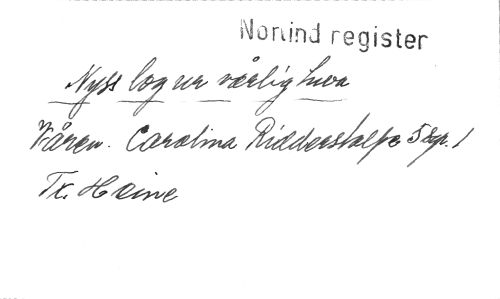 Norlind register
Nyss log ur vårlig huva
Våren. Carolina Ridderstolpe 5 Sgr. 1
Tx. Heine